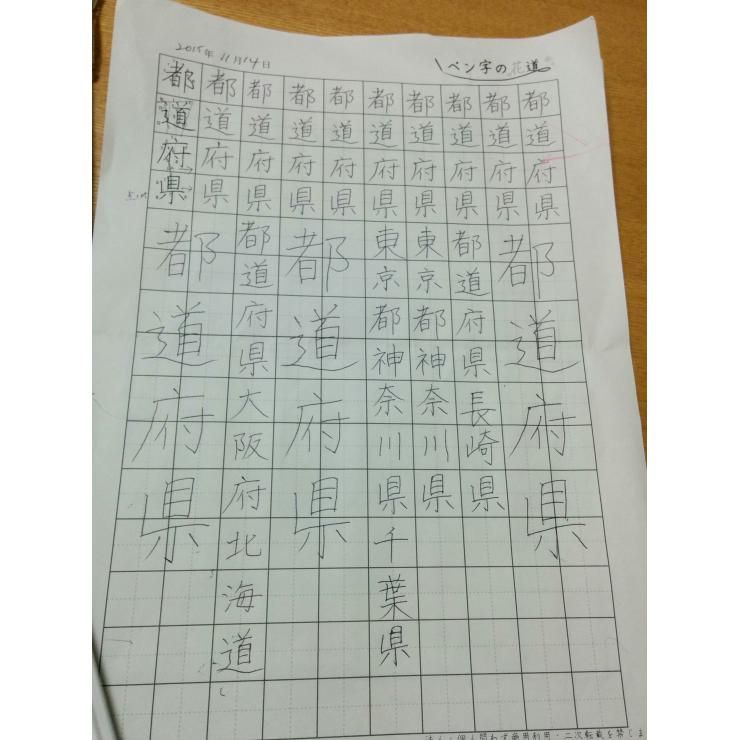 2015年 11月14日
ペン字の花道
都道府県
都道府県
都道府県
都道府県
都道府県長崎県
都道府県
東京都神奈川県
都道府県
東京都神奈川県千葉県
都道府県
都道府県
都道府県
都道府県
都道府県大阪府北海道
都道府県
都道府県
都道府県
個人問わず商用利用・二次転載を禁じま